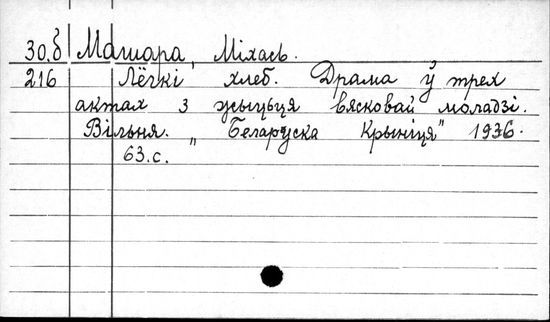 30.б Машара, Міхась.
216 Лёгкі хлеб. Драма ў трех
актах з жыцьця вясковай моладзі.
Вільня. „Беларуска Крыніця" 1936.
63.с.